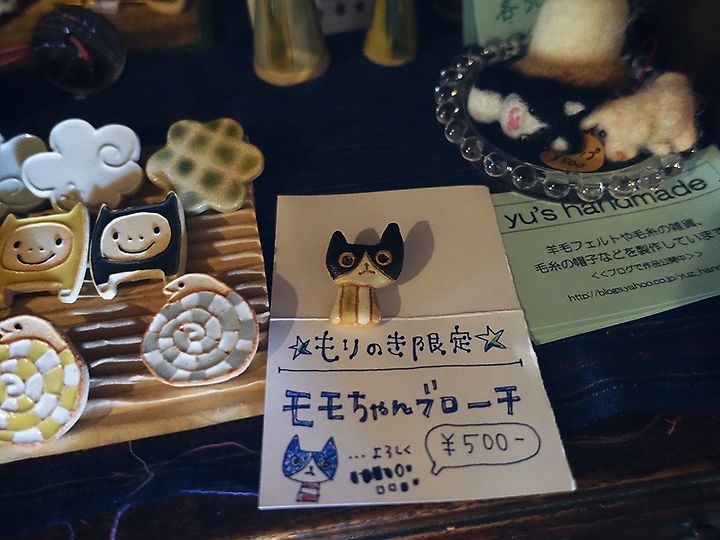 ¥500
yu's handmade
羊毛フェルトや毛糸の雑貨、
毛糸の帽子などを製作しています
<<ブログで作品公開中>>
☆もりのき限定☆
モモちゃんブローチ
...よろしく
¥500-